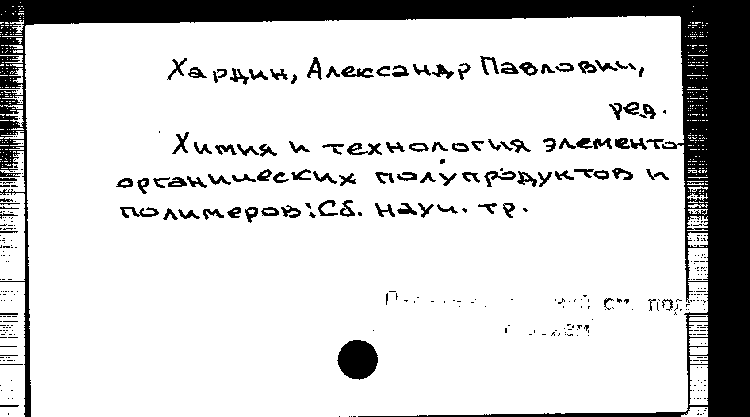 Хардин, Александр Павлович,
ред.
Химия и технология элементо-
органических полупродуктов и
полимеров: Сб. науч. тр.
см. под